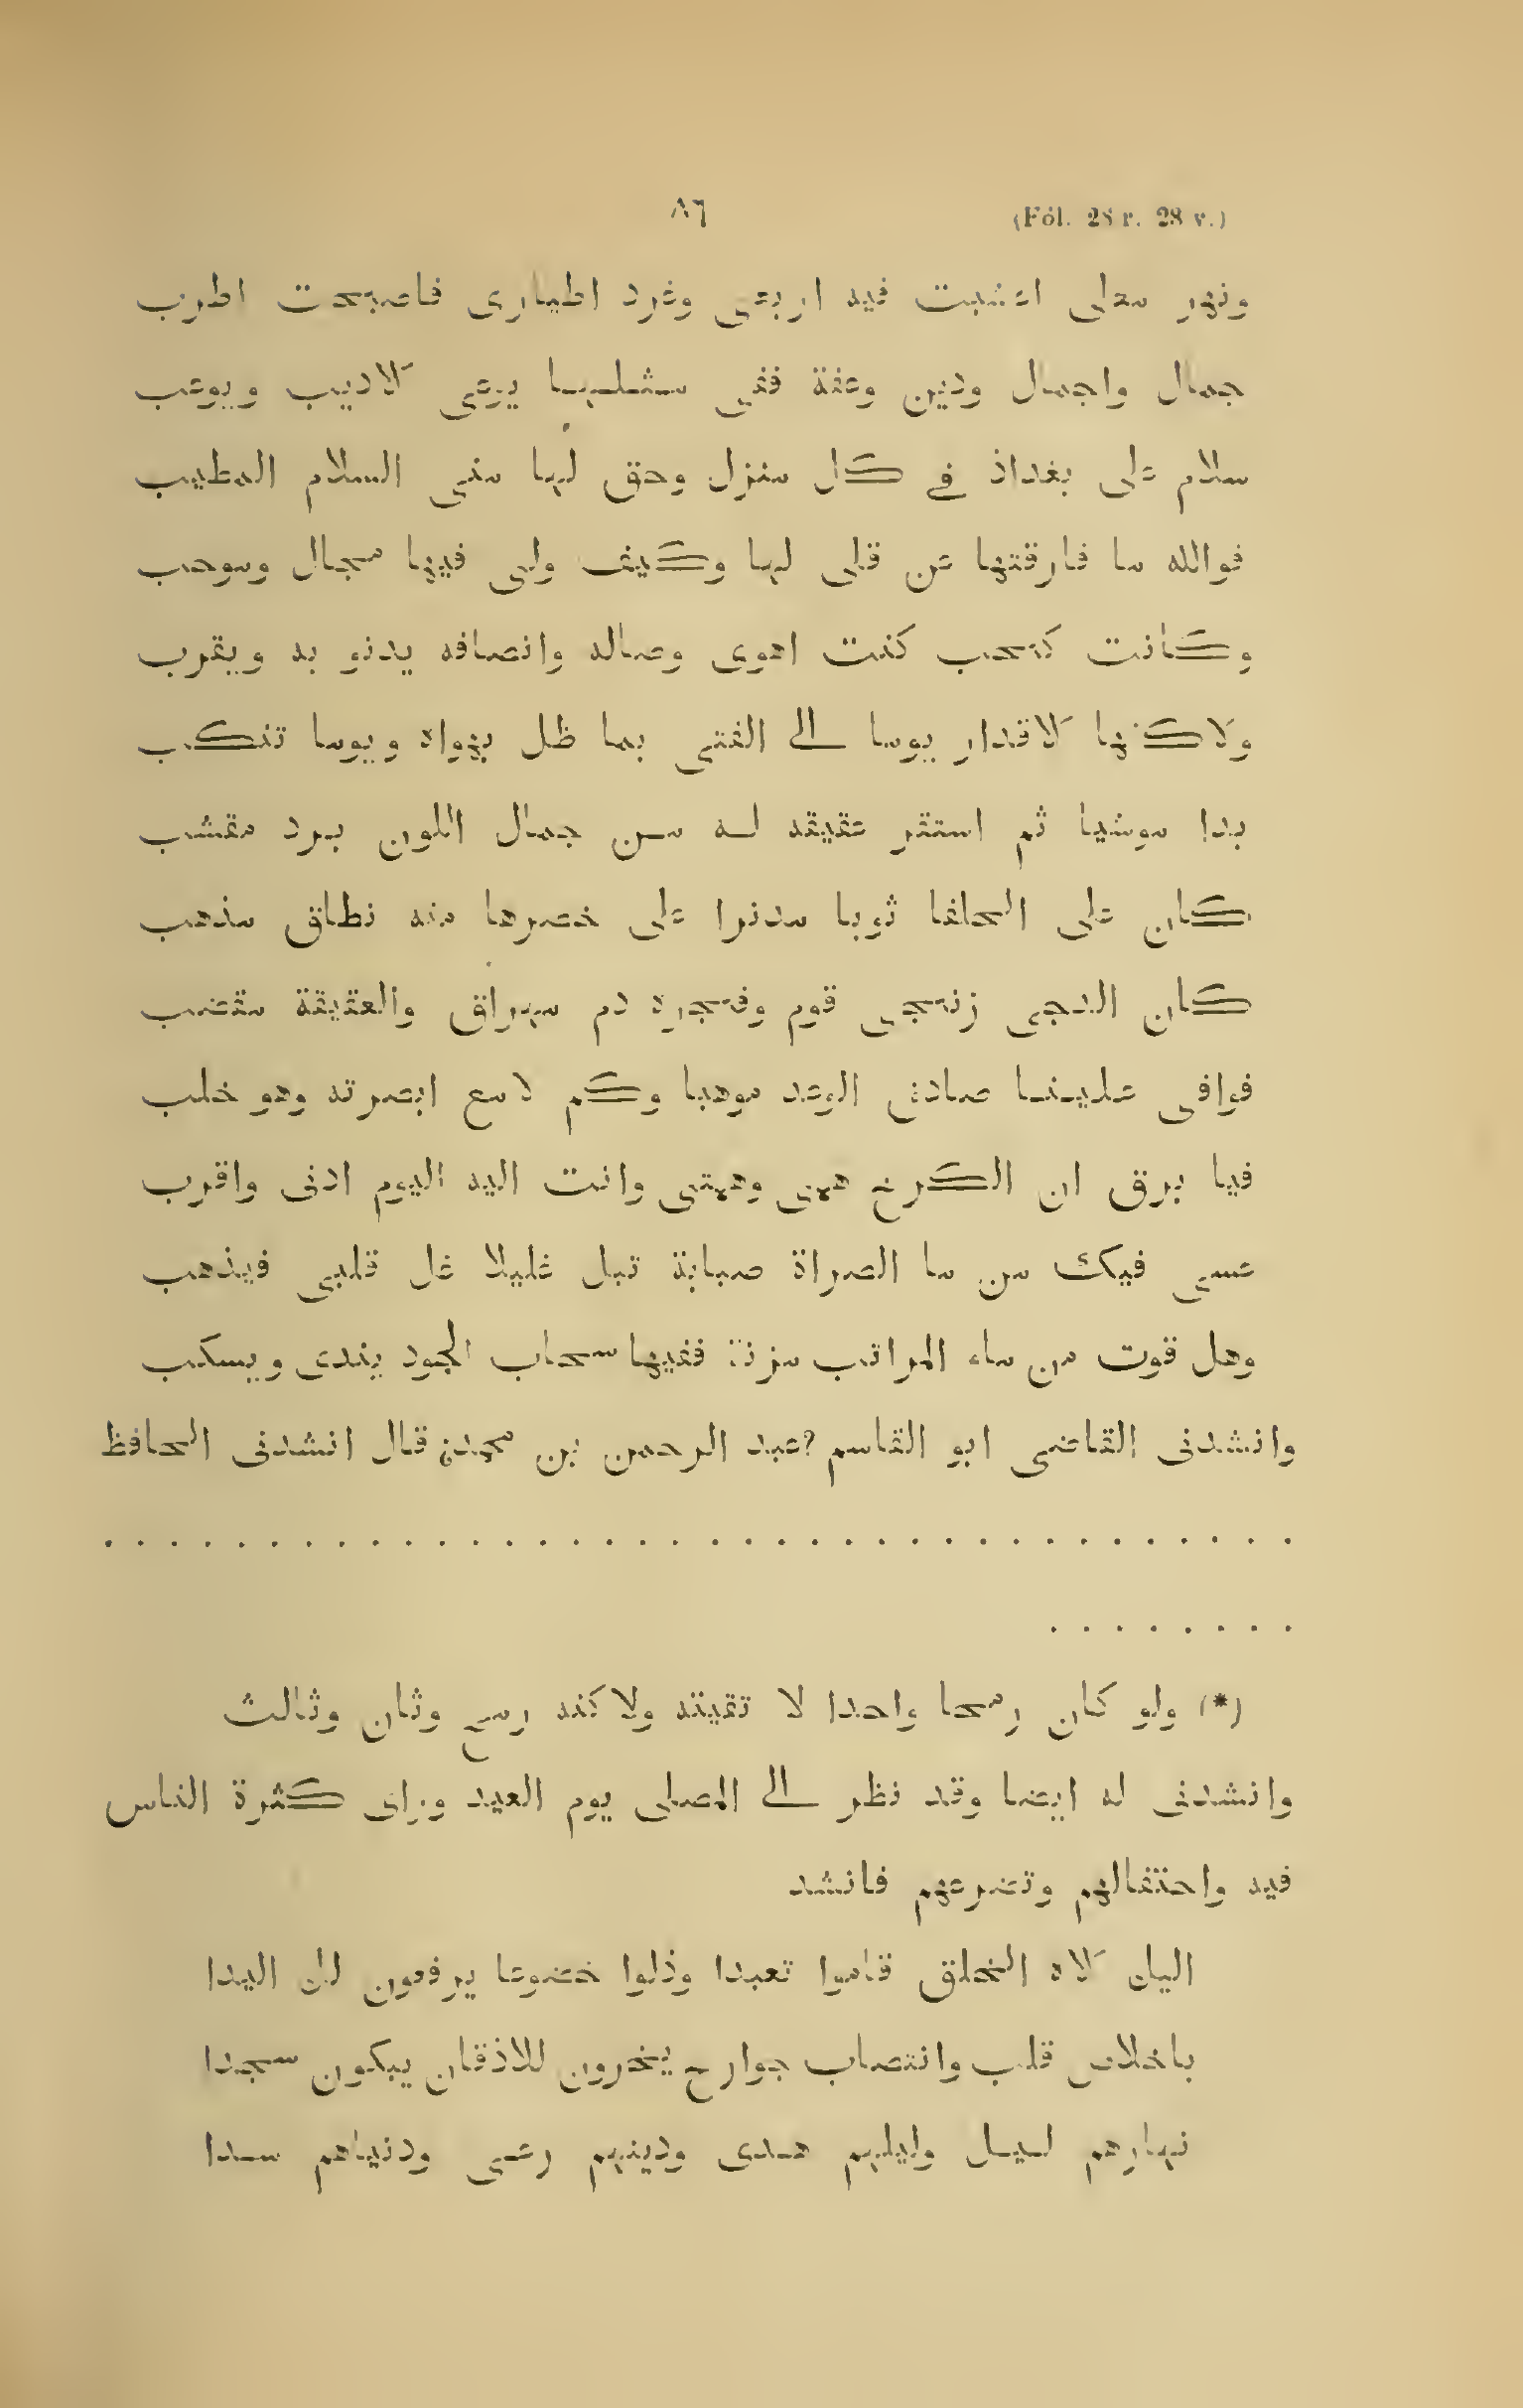 (Fól. 28 r. 28 v.) ٨٦
ونهر معلى اعشبت فيه اربعى وغرد اطيارى فاصبحت اطرب
جمال واجمال ودين وعفة ففى مثلها يرعى لاديب ويوعب
سلام على بغداذ فى كل منزل وحق لها منى السلام المطيب
فوالله ما فارقتها عن قلى لها وكيف ولى فيها مجال وموحب
وكانت كحب كنت اهوى وصاله وانصافه يدنو به ويقرب
ولاكنها لاقدار يوما الى الفتى بما ظل يهواه ويوما تنكب
بدا موشيا ثم استتر عقيقه له من جمال اللون برد مقشب
كان على الحلفا ثوبا مدنرا على خصرها منه نطاق مذهب
كان الدجى زنجى قوم وفجره دم مهراق والعقيقة مقضب
فوافى علينا صادق الوعد موهبا وكم لامع ابصرته وهو خلب
فيا برق ان الكرخ همى وهمتى وانت اليه اليوم ادنى واقرب
عسى فيك من ما الصراة صبابة تبل غليلا غل قلبى فيذهب
وهل قوت من ماء المراتب مزنة ففيها سحاب الجود يندى ويسكب
وانشدنى القاضى ابو القاسم ?عبد الرحمن بن محمد قال انشدنى الحافظ
. . . . . . . . . . . . . . . . . . . . . . . . . . . . . . . . . . . .
. . . . . . . .
(*) ولو كان رمحا واحدا لا تقيته ولاكنه رمح وثان وثالث
وانشدنى له ايضا وقد نظر الى المصلى يوم العيد وراى كثرة الناس
فيه واحتفالهم وتضرعهم فانشد
اليك لاه الخلق قاموا تعبدا وذلوا خضوعا يرفعون لك اليدا
باخلاص قلب وانتصاب جوارح يخرون للاذقان يبكون سجدا
نهارهم ليل وليلهم هدى ودينهم رعى ودنياهم سدا